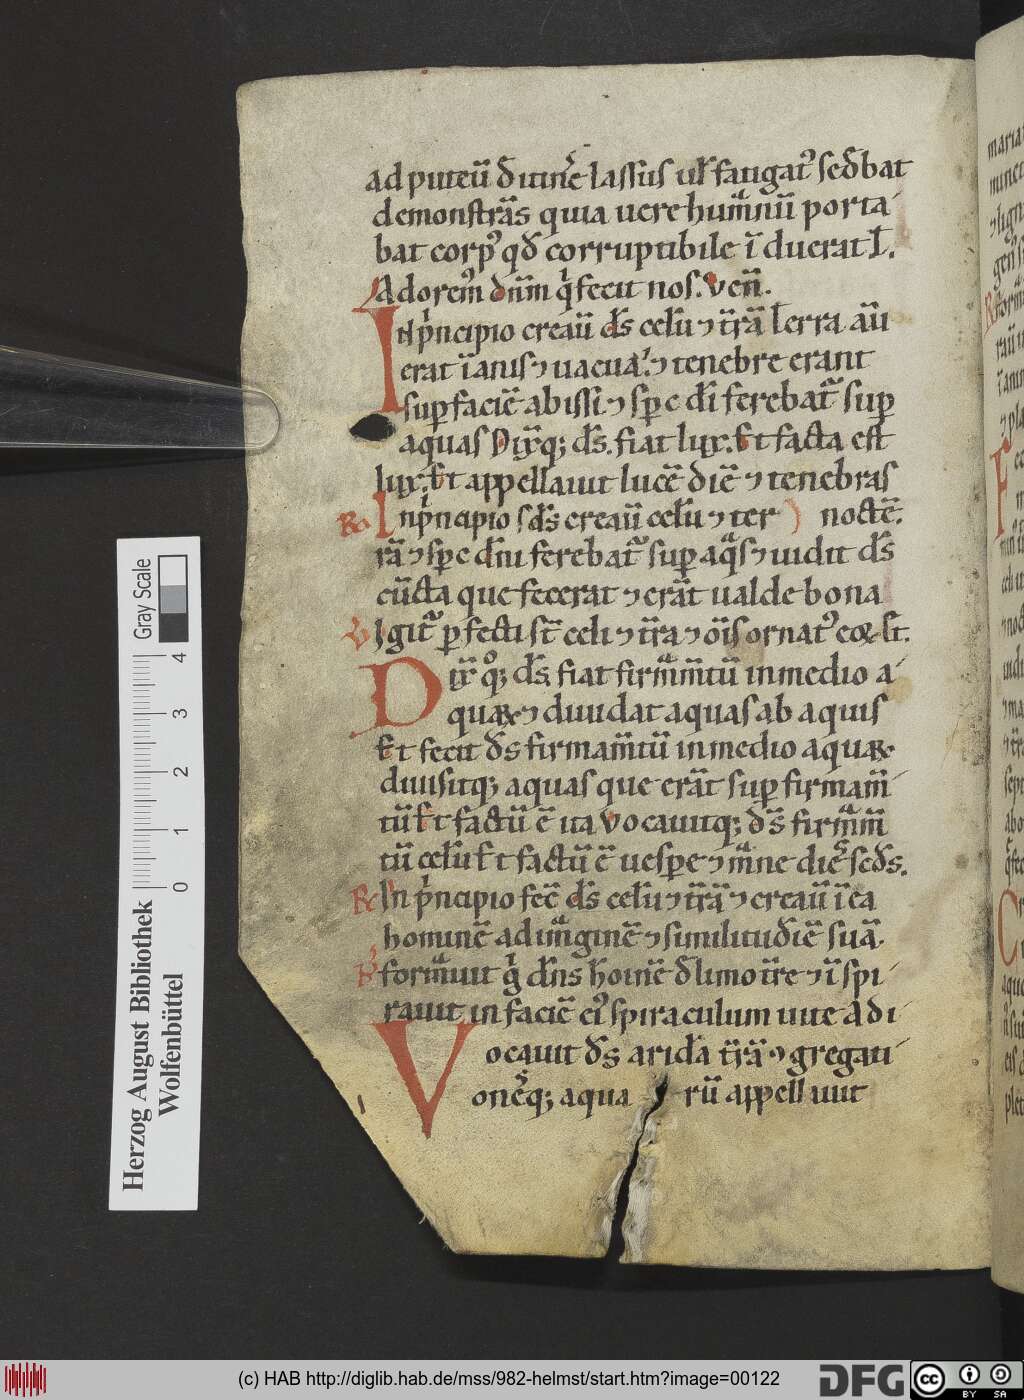 ad puteū d̄ itinꝰe lassus ul̄ fatigatꝰ sed̄bat
demonstrās quia uere humanū porta
bat corpꝰ qd̄ corruptibile ī duerat
Adoremꝰ dn̄m qⁱ fecit nos. Ven̄.
In pⁱncipio creaū ds̄ celū ⁊ t̄rā Terra aū
erat īanis ⁊ uacua ⁊ tenebre erant
sup faciē abissi ⁊ sp̄c dī ferebatᷣ sup
aquas Dixᷣq; ds̄. fiat lux. Et facta est
lux. Et appellauit lucē diē ⁊ tenebras
noctē.
R̄ In pⁱncipio ds̄ creaū celū ⁊ ter
rā ⁊ sp̄c dn̄i ferebatᷣ sup aqᵃs ⁊ uidit ds̄
cūcta que fecerat ⁊ erāt ualde bona
V Igitᷣ pfecti st̄ celi ⁊ t̄ra ⁊ oīs ornatꝰ eoꝝ
Dix̄ qͦq; ds̄. fiat firmᵃm̄tū in medio a
quaꝝ ⁊ diuidat aquas ab aquis
Et fecit ds̄ firmam̄tū in medio aquaꝝ
diuisitq; aquas que erāt sup firmam̄
tū Et factū ē ita Vocauitq; ds̄ firmᵃm̄
tū celū Et factū ē uespe ⁊ mᵃne dieꝰ scd̄s.
R̄ In pⁱncipio fec̄ ds̄ celū ⁊ t̄rā ⁊ creaū ī ea
hominē ad imᵃginē ⁊ similitudīē suā.
V formᵃuit gⁱ dn̄s hoīnē d̄ limo t̄re ⁊ īspi
rauit in faciē eiꝰ spiraculum uite A di
Vocauit ds̄ aridā t̄rā ⁊ gregati
onesq; aqua rū appellauit
Gray Scale
0 1 2 3 4
Herzog August Bibliothek
Wolfenbüttel
(c) HAB http://diglib.hab.de/mss/982-helmst/start.htm?image=00122
DFG
cc BY SA